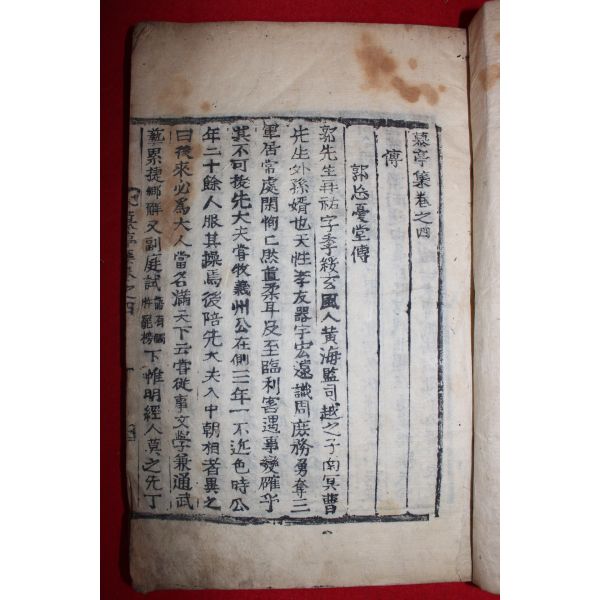 慕亭集卷之四
傳
郭忘憂堂傳
郭先生再祐字季綏玄風人黃海監司越之子南冥曹
先生外孫婿也天性孝友器宇宏遠識周庶務勇奪三
軍居常處閑恂〻然直柔耳及至臨利害遇事變確乎
其不可拔先大夫嘗牧義州公在側三年一不近色時公
年二十餘人服其操焉後陪先大夫入中朝相者異之
曰後來必爲大人當名滿天下云嘗從事文學兼通武
藝累捷鄕解又副庭試 下帷明經人莫之先丁
慕亭集卷之四